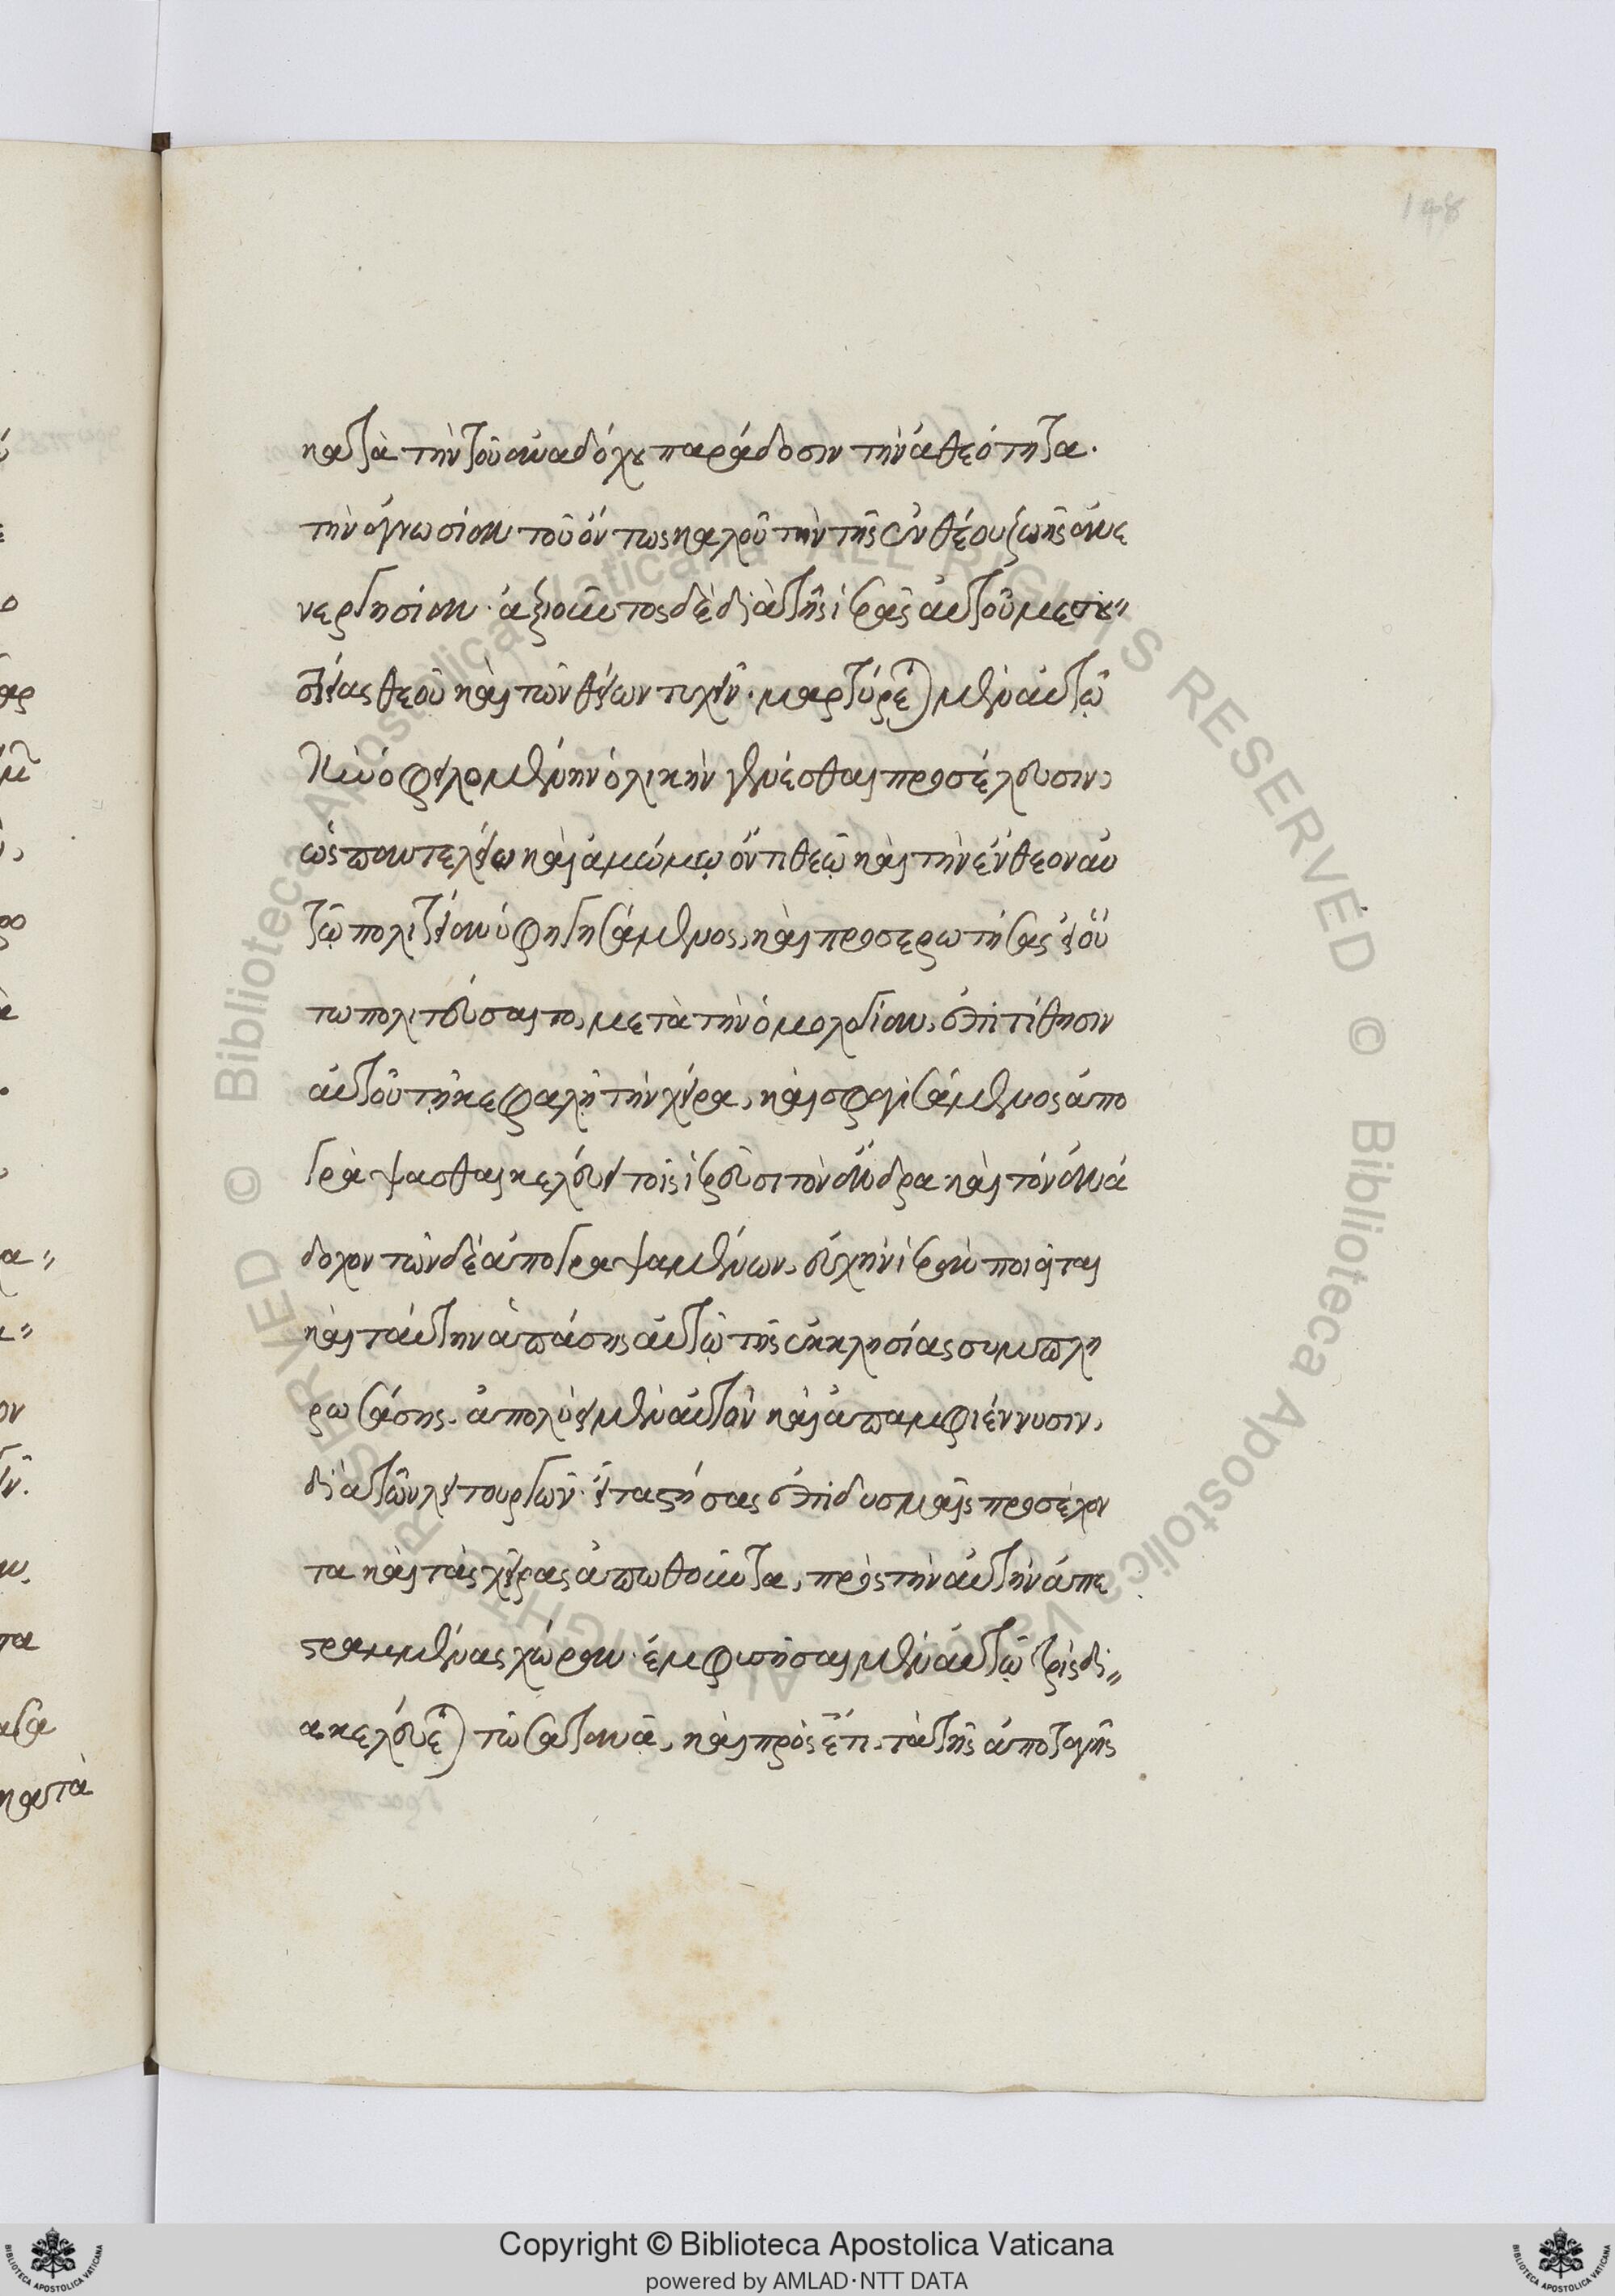 148
κατὰ τὴν τοῦ ἀναδόχου παράδοσιν τὴν ἀθεότητα.
τὴν ἀγνωσίαν τοῦ ὄντως καλοῦ τὴν τῆς ἐνθέου ζωῆς ἀνε
νεργησίαν. ἀξιοῦντος δὲ διὰ τῆς ἱερᾶς αὐτοῦ μεσι〃
τείας θεοῦ καὶ τῶν θείων τυχεῖν. μαρτύρεται μὲν αὐτῷ
τὴν ὀφειλομένην ὁλικὴν γενέσθαι προσέλευσιν,
ὡς παντελείῳ καὶ ἀμώμῳ ὄντι θεῷ καὶ τὴν ἔνθεον αὐ
τῷ πολιτείαν ὑφηγησάμενος, καὶ προσερωτήσας εἰ οὕ
τω πολιτεύσαιτο, μετὰ τὴν ὁμολογίαν, ἐπιτίθησιν
αὐτοῦ τῇ κεφαλῇ τὴν χεῖρα, καὶ σφραγισάμενος ἀπο
γράψασθαι κελεύει τοῖς ἱερεῦσι τὸν ἄνδρα καὶ τὸν ἀνά
δοχον τῶν δὲ ἀπογραψαμένων, εὐχὴν ἱερὰν ποιεῖται
καὶ ταύτην ἁπάσης αὐτῷ τῆς ἐκκλησίας συμπλη
ρωσάσης. ἀπολύει μὲν αὐτὸν καὶ ἀπαμφιέννυσιν,
διὰ τῶν λειτουργῶν. εἶτα στήσας ἐπὶ δυσμαῖς προσέχον
τα καὶ τὰς χεῖρας ἀπωθοῦντα, πρὸς τὴν αὐτὴν ἀπε
στραμμένας χώραν. ἐμφυσῆσαι μὲν αὐτῷ τρὶς δι〃
ακελεύεται τῷ σατανᾷ, καὶ πρὸς ἔτι τὰ τῆς ἀποταγῆς
Copyright © Biblioteca Apostolica Vaticana
powered by AMLAD·NTT DATA